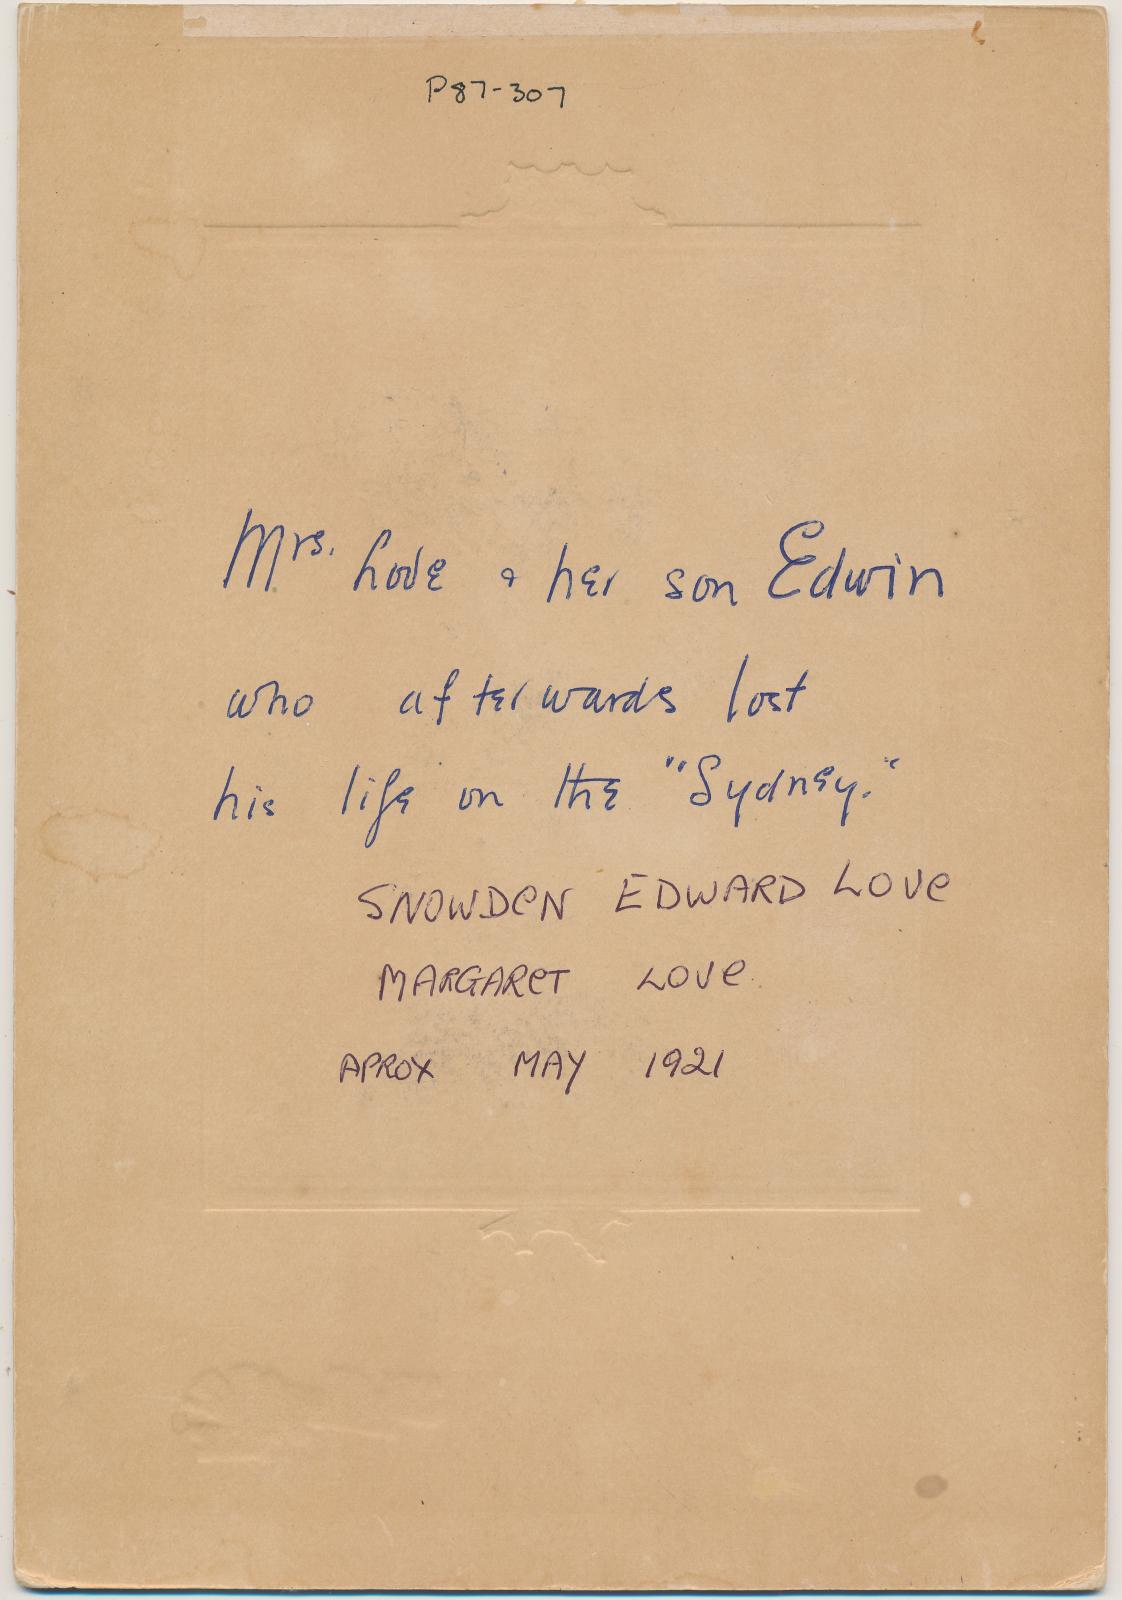 P87-307
Mrs. Love & her son Edwin
who afterwards lost
his life on the "Sydney."
SNOWDEN EDWARD LOVE
MARGARET LOVE.
APROX MAY 1921